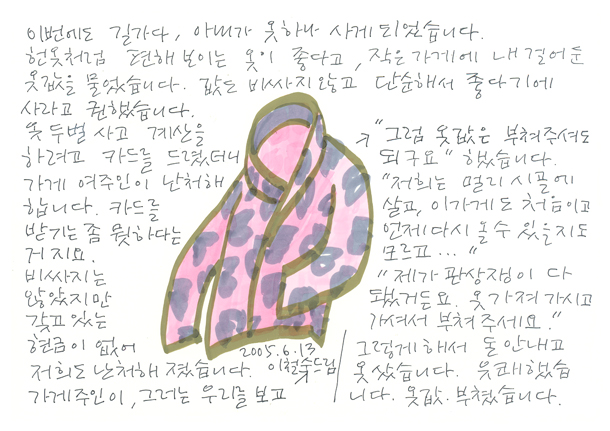 이번에도 길가다, 아내가 옷하나 사게 되었습니다.
헌옷처럼 편해 보이는 옷이 좋다고, 작은 가게에 내걸어둔
옷값을 물었습니다. 값도 비싸지않고 단순해서 좋다기에
사라고 권했습니다.
옷 두벌 사고 계산을
하려고 카드를 드렸더니
가게 여주인이 난처해
합니다. 카드를
받기는 좀 뭣하다는
거지요.
비싸지는
않았지만
갖고 있는
현금이 없어
저희도 난처해 졌습니다.
가게주인이, 그러는 우리를 보고
"그럼 옷값은 부쳐주셔도
되구요" 했습니다.
"저희는 멀리 시골에
살고, 이가게도 처음이고
언제 다시 올수 있을지도
모르고..."
"제가 판상쟁이 다
됐거든요. 옷 가져 가시고
가셔서 부쳐 주세요."
그렇게 해서 돈 안내고
옷 샀습니다. 유쾌했습
니다. 옷값. 부쳤습니다.
2005.6.13
이철수드림